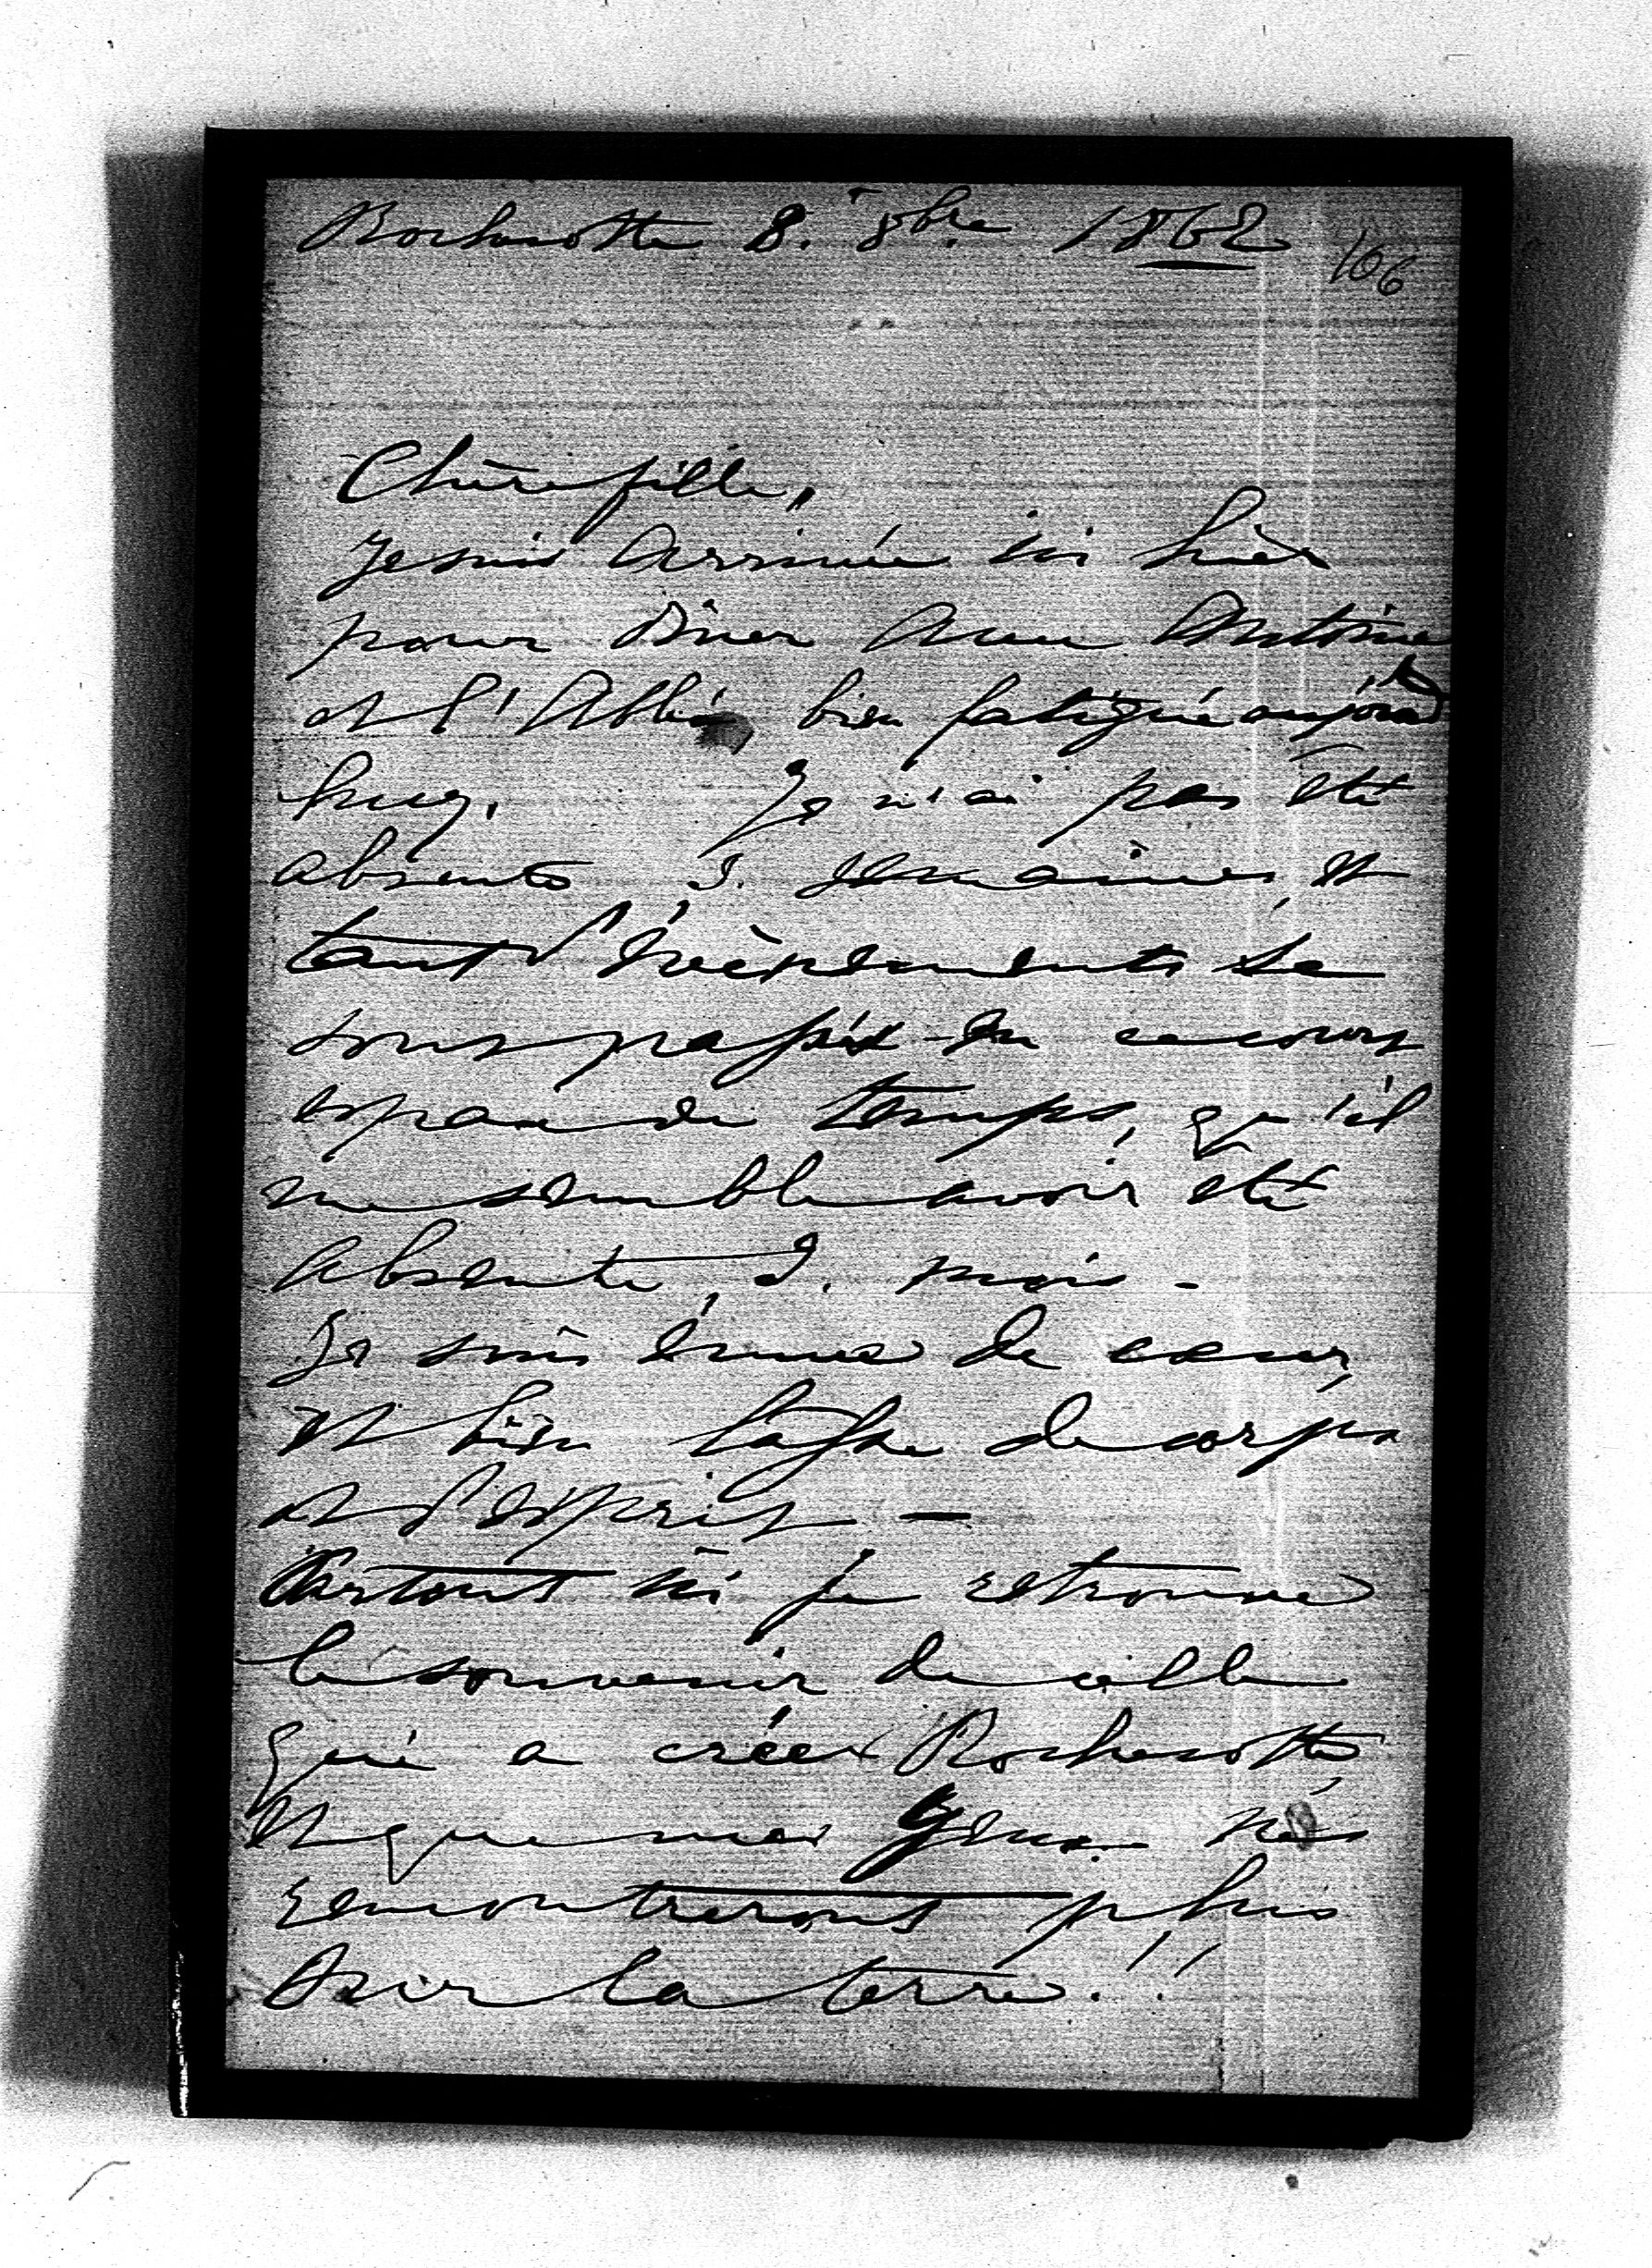 Rochecotte 8. 8bre 1862
106
Chère fille,
Je suis arrivée ici hier
pour diner avec Antoine
et l'Abbé, bien fatiguée aujourd
huy. Je n'ai pas été
absente 3. semaines, et
tant d'évènements se
sont passés en ce court
espace de temps, qu'il
me semble avoir été
absente, 3. mois -
Je suis émue de cœur,
et bien lasse de corps
et d'esprit -
Partout ici je retrouve
le souvenir de celle
qui a créée Rochecotte
et que mes yeux ne
rencontreront plus
sur la terre!!